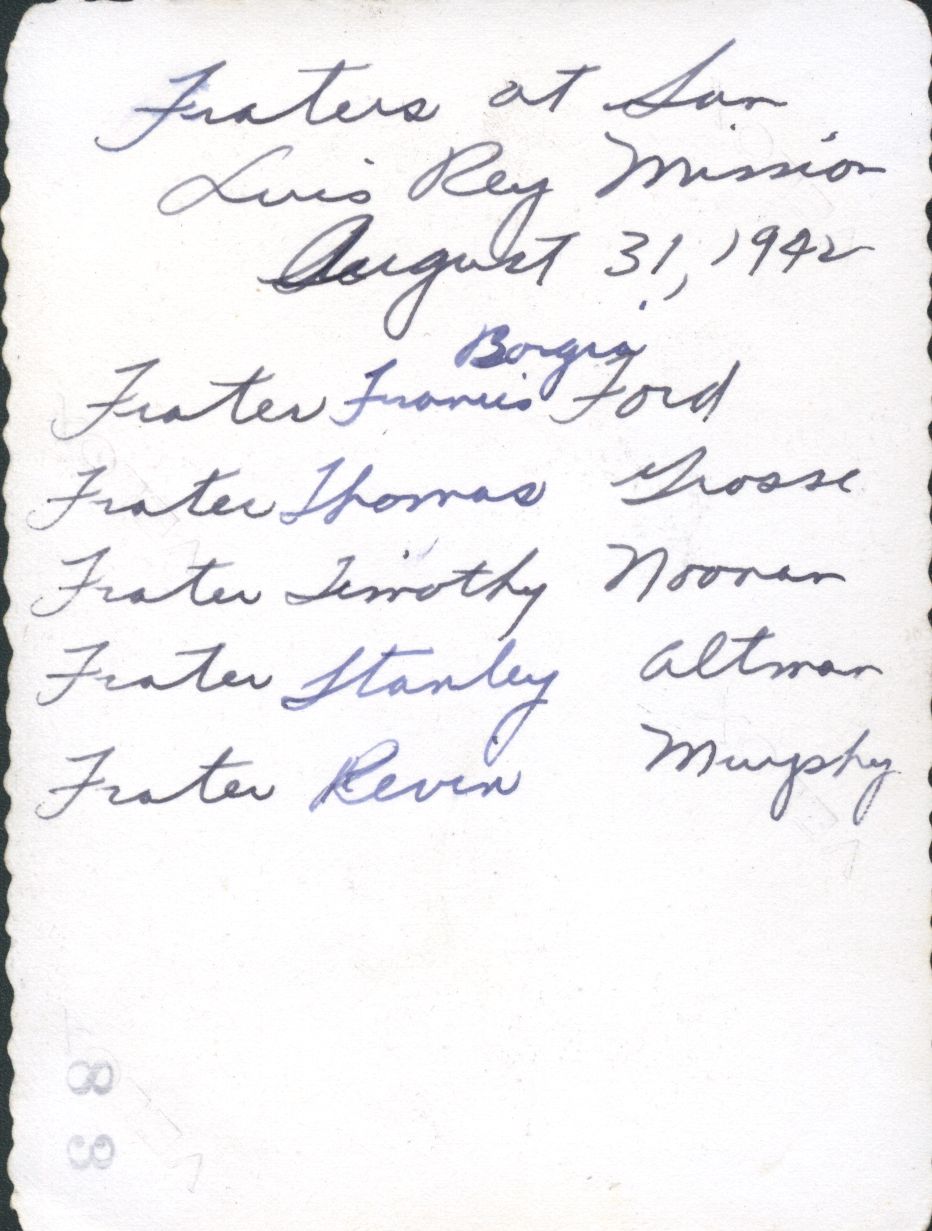 Fraters at San
Luis Rey Mission
August 31, 1942
Borgia
Frater Francis Ford
Frater Thomas Grosse
Frater Timothy Noonan
Frater Stanley Altman
Frater Kevin Murphy
8
3